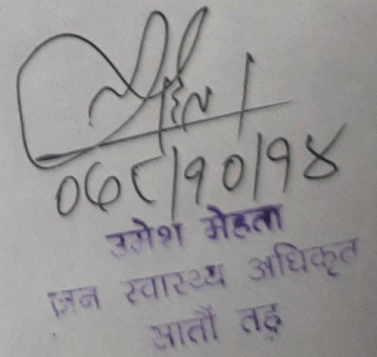 ०७८/१०/१४
उमेश मेहता
जन स्वास्थ्य अधिकृत
सातौं तह